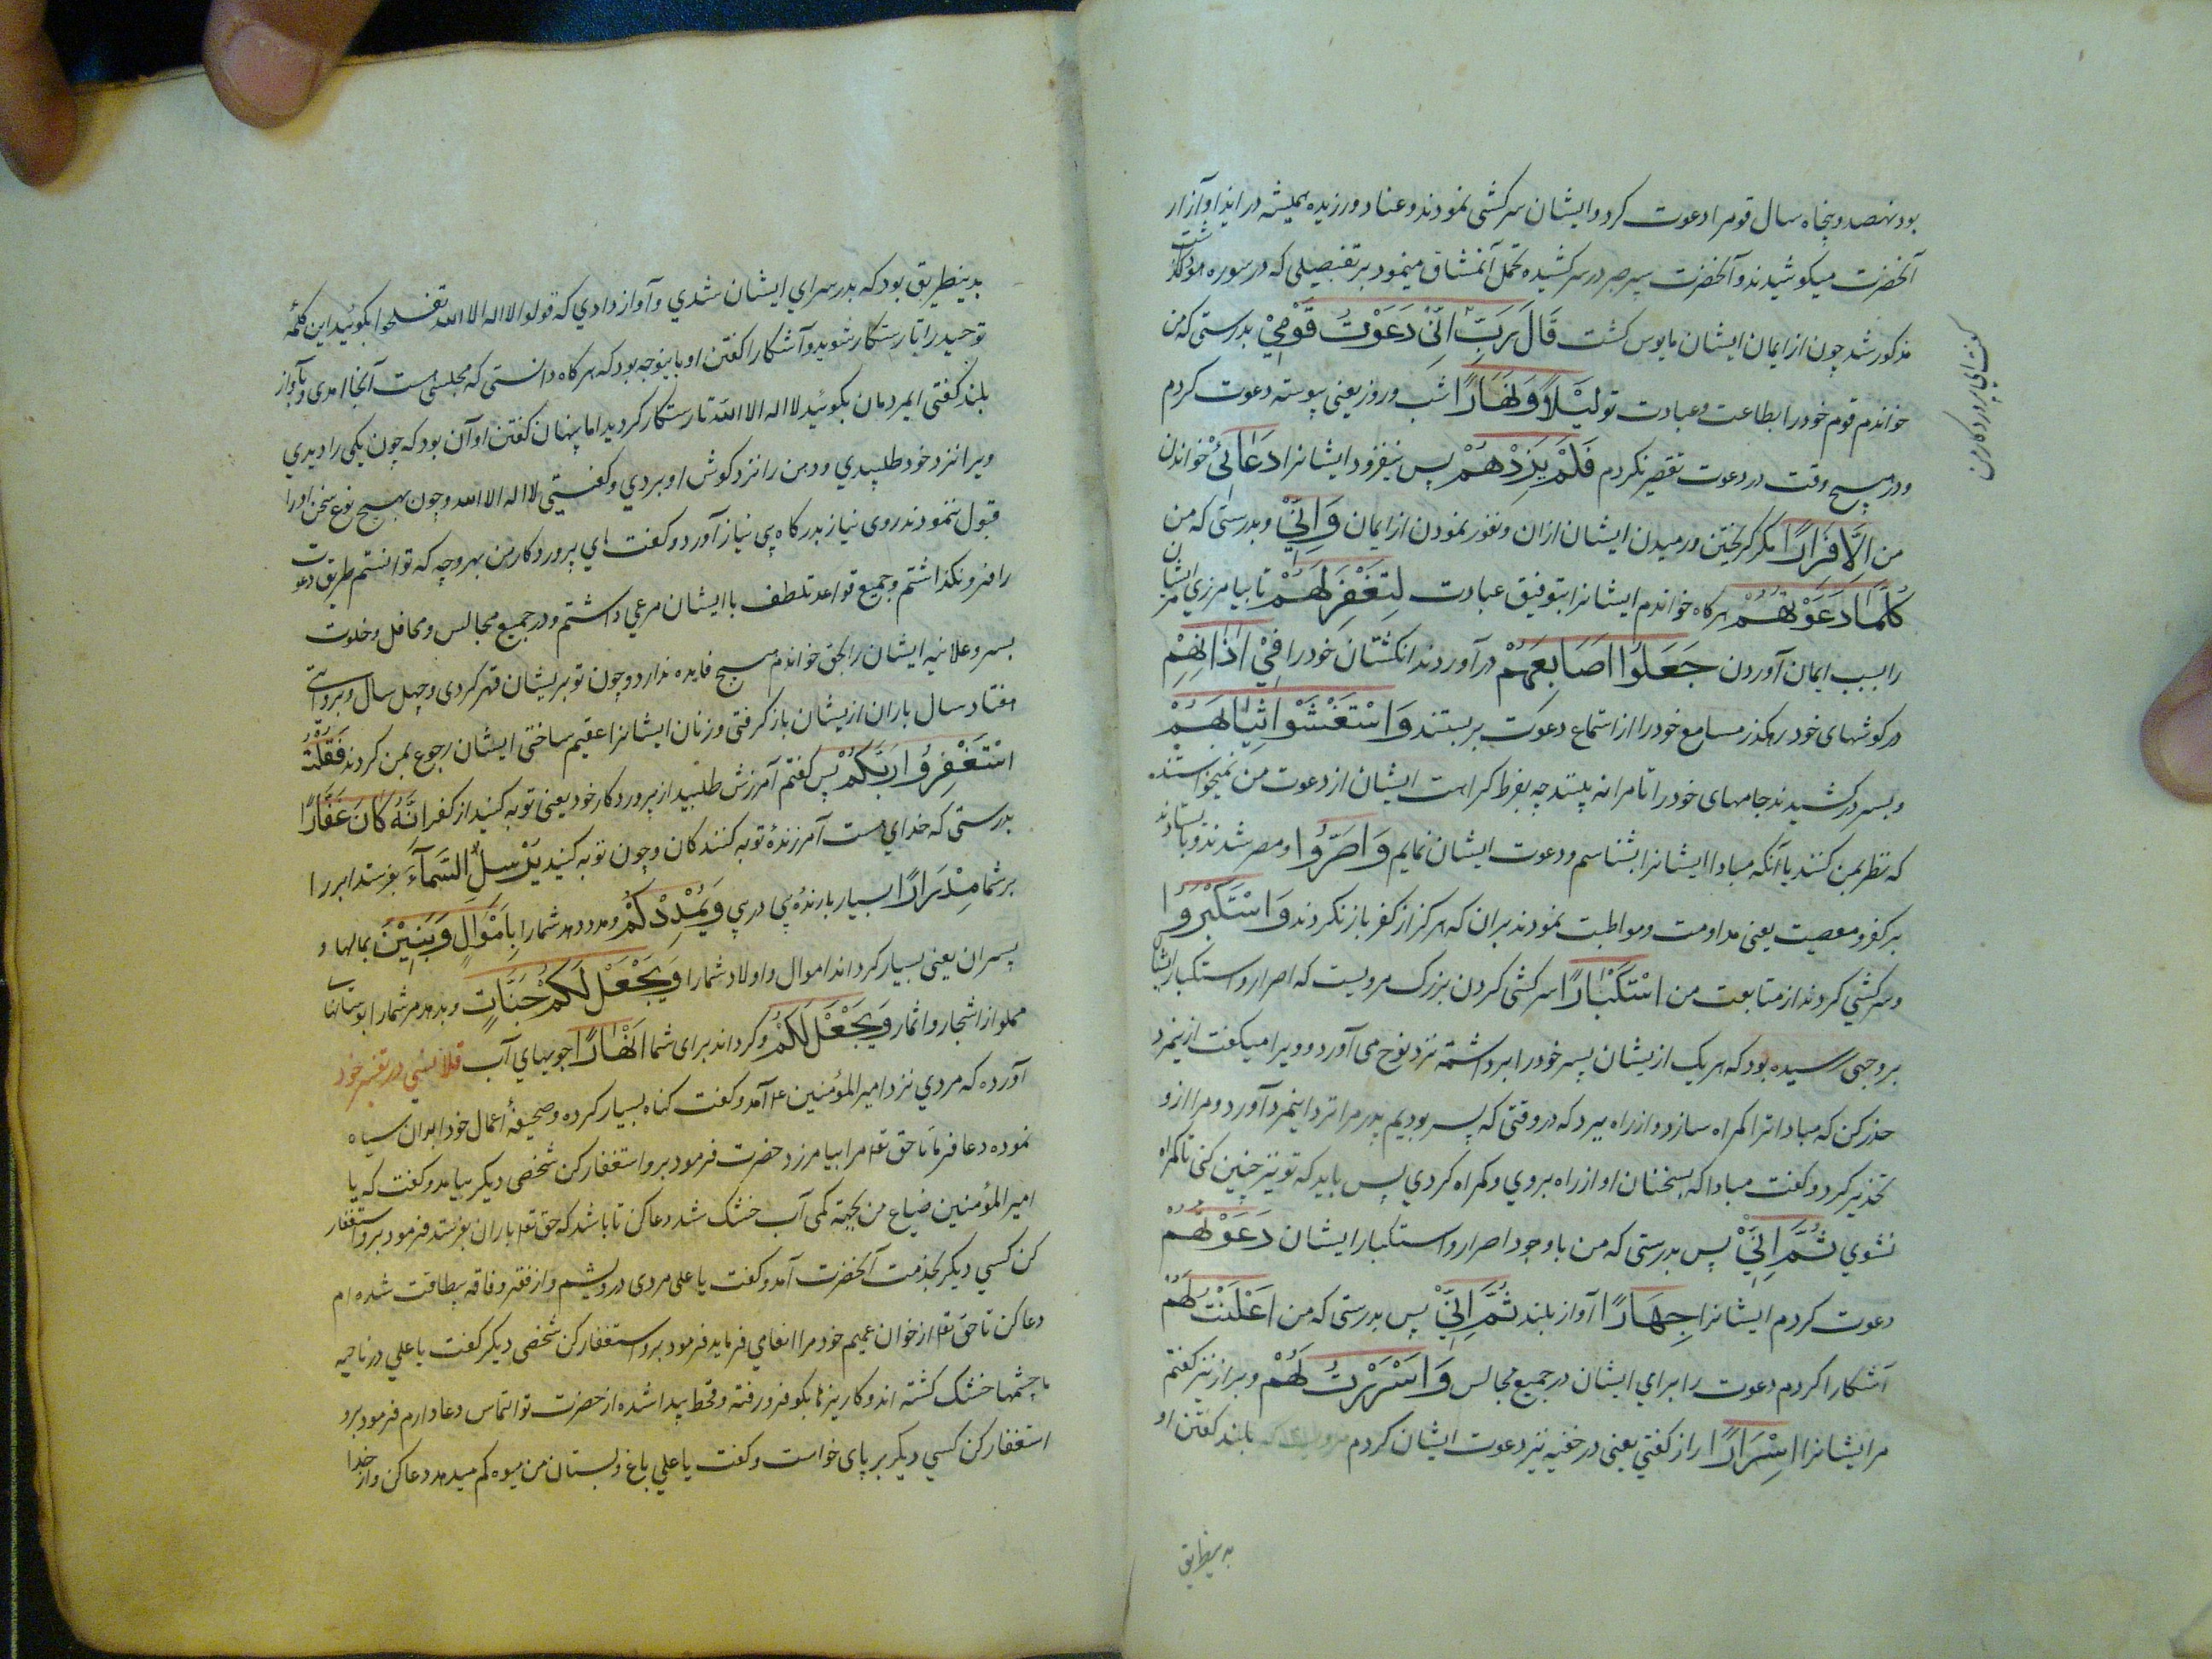 بود نهصد و پنجاه سال قومرا دعوت کرد و ایشان سرکشی نمودند و عناد ورزیده همیشه در ایذا و آزار
آنحضرت میکوشیدند و آنحضرت سپر صبر در سر کشیده تحمل آنمشاق مینمود بر تفصیلی که در سوره هود گذشت
مذکور شد چون از ایمان ایشان مایوس گشت قَالَ رَبِّ اِنِّیْ دَعَوْتُ قَوْمِیْ بدرستی که من
گفت ای پروردکار من
خواندم قوم خود را بطاعت و عبادت تو لَیْلًا وَنَهَارًا شب و روز یعنی پیوسته دعوت کردم
و در هیچ وقت در دعوت تقصیر نکردم فَلَمْ یَزِدْهُمْ پس نیفزود ایشانرا دُعَائِیْ خواندن
من اِلَّا فِرَارًا مکر کریختن و رمیدن ایشان ازان و نفور نمودن از ایمان وَاِنِّیْ و بدرستی که من
کُلَّمَا دَعَوْتُهُمْ هرکاه خواندم ایشانرا بتوفیق عبادت لِتَغْفِرَ لَهُمْ تا بیامرزی مر ایشان
را بسبب ایمان آوردن جَعَلُوْا اَصَابِعَهُمْ درآوردند انکشتان خود را فِیْ اٰذَانِهِمْ
در کوشهای خود رهکذر مسامع خود را از استماع دعوت بر بستند وَاسْتَغْشَوْا ثِیَابَهُمْ
و بسر درکشیدند جامهای خود را تا مرا نه بینند چه بفرط کراهت ایشان از دعوت من نمیخواستند
که نظر بمن کنند یا آنکه مبادا ایشانرا بشناسم و دعوت ایشان نمایم وَاَصَرُّوا و مصر شدند و بایستادند
بر کفر و معصیت یعنی مداومت و مواظبت نمودند بران که هرکز از کفر باز نکردند وَاسْتَکْبَرُوا
و سرکشی کردند از متابعت من اسْتِکْبَارًا سرکشی کردن بزرک مرویست که اصرار و استکبار ایشان
بر وجهی رسیده بود که هر یک از یشان پسر خود را برداشته نزد نوح می آورد و ویرا میکفت ازینمرد
حذر کن که مبادا ترا کمراه سازد و از راه ببرد که در وقتی که پسر بودیم پدر مرا نزد اینمرد آورد و مرا ازو
تحذیر کرد و کفت مبادا که بسخنان او از راه بروی و کمراه کردی پس باید که تو نیز چنین کنی تا کمراه
نشوی ثُمَّ اِنِّیْ پس بدرستی که من باوجود اصرار و استکبار ایشان دَعَوْتُهُمْ
دعوت کردم ایشانرا جِهَارًا آواز بلند ثُمَّ اِنِّیْ پس بدرستی که من اَعْلَنْتُ لَهُمْ
آشکارا کردم دعوت را برای ایشان در جمیع مجالس وَاَسْرَرْتُ لَهُمْ و براز نیز کفتم
مر ایشانرا اِسْرَارًا راز کفتنی یعنی در خفیه نیز دعوت ایشان کردم مرویست که بلند کفتن او
بدینطریق
بدینطریق بود که بدر سرای ایشان شدی و آواز دادی که قولوا لا اله الا الله تفلحوا بکوئید این کلمهٔ
توحید را تا رستکار شوید و آشکارا کفتن او باینوجه بود که هرکاه دانستی که مجلسی هست آنجا آمدی و بآواز
بلند کفتی ایمردمان بکوئید لا اله الا الله تا رستکار کردید اما پنهان کفتن او آن بود که چون یکی را دیدی
ویرا نزد خود طلبیدی و دهن را نزد کوش او بردی و کفتی لا اله الا الله و چون بهیچ نوع سخن او را
قبول ننمودند روی نیاز بدرکاه بی نیاز آورد و کفت ای پروردکار من بهر وجه که توانستم طریق دعوت
را فرو نکذاشتم و جمیع قواعد تلطف با ایشان مرعی داشتم و در جمیع مجالس و محافل و خلوت
بسر و علانیه ایشان را بحق خواندم هیچ فایده ندارد و چون تو بر یشان قهر کردی و چهل سال و بروایتی
هفتاد سال باران از یشان باز کرفتی و زنان ایشانرا عقیم ساختی ایشان رجوع بمن کردند فَقُلْتُ
اسْتَغْفِرُوْا رَبَّکُمْ پس کفتم آمرزش طلبید از پروردکار خود یعنی توبه کنید از کفر اِنَّهُ کَانَ غَفَّارًا
بدرستی که خدای هست آمرزندهٔ توبه کنندکان و چون توبه کنید یُرْسِلِ السَّمَآءَ بفرستد ابر را
بر شما مِدْرَارًا بسیار بارندهٔ پی در پی وَیُمْدِدْکُمْ و مدد دهد شما را بِاَمْوَالٍ وَبَنِیْنَ بمالها و
پسران یعنی بسیار کرداند اموال و اولاد شما را وَیَجْعَلْ لَکُمْ جَنَّاتٍ و بدهد مر شما را بوستانهای
مملو از اشجار و اثمار وَیَجْعَلْ لَکُمْ و کرداند برای شما اَنْهَارًا جویهای آب قلانسی در تفسیر خود
آورده که مردی نزد امیر المؤمنین ع آمد و کفت کناه بسیار کرده و صحیفهٔ اعمال خود ابران سیاه
نموده دعا فرما تا حق تع مرا بیامرزد حضرت فرمود برو استغفار کن شخصی دیکر بیامد و کفت که یا
امیر المؤمنین ضیاع من بجهة کمی آب خشک شد دعا کن تا باشد که حق تع باران بفرستد فرمود برو استغفار
کن کسی دیکر بخدمت آنحضرت آمد و کفت یا علی مردی درویشم و از فقر و فاقه بیطاقت شده ام
دعا کن تا حق تع از خوان عمیم خود مرا انعامی فرماید فرمود برو استغفار کن شخصی دیکر کفت یا علی در ناحیه
ما چشمها خشک کشته اند و کاریزها بکو فرو رفته و قحط پیدا شده از حضرت تو التماس دعا دارم فرمود برو
استغفار کن کسی دیکر بر پای خواست و کفت یا علی باغ و بستان من میوه کم میدهد دعا کن و از خدا